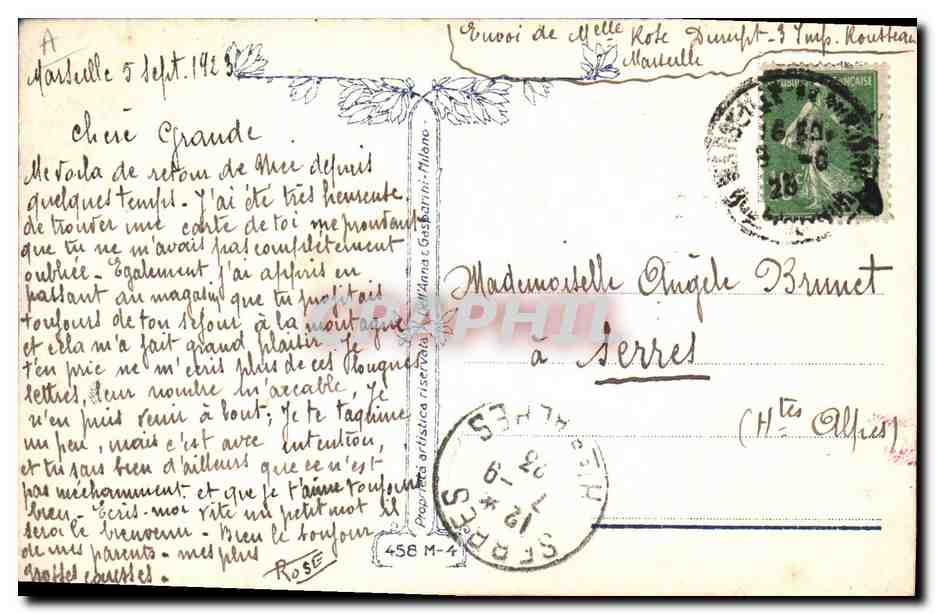 A
Envoi de Melle Rose Dumpt - 3 Imp. Rousseau
Marseille
Marseille 5 Sept. 1923
Chère Grande
Me voila de retour de Nice depuis
quelques temps. J'ai été très heureuse
de trouver une carte de toi me prouvant
que tu ne m'avais pas complètement
oubliée - Egalement j'ai appris en
passant au magasin que tu profitais
toujours de ton séjour à la montagne
et cela m'a fait grand plaisir. Je
t'en prie ne m'écris plus de ces longues
lettres, leur nombre m'accable, Je
n'en puis venir à bout; Je te taquine
un peu, mais c'est avec intention,
et tu sais bien d'ailleurs que ce n'est
pas méchamment et que je t'aime toujours
bien - Ecris-moi vite un petit mot il
sera le bienvenu - Bien le bonjour
de mes parents - mes plus
grosses caresses.
ROSE
Proprietà artistica riservata Dell'Anna & Gasparini - Milano.
458 M-4
CPAPHIL
FRANÇAISE
Mademoiselle Angèle Brunet
à Serres
(Htes Alpes)
SERRES
HTES ALPES
12 *
7 - 9
23